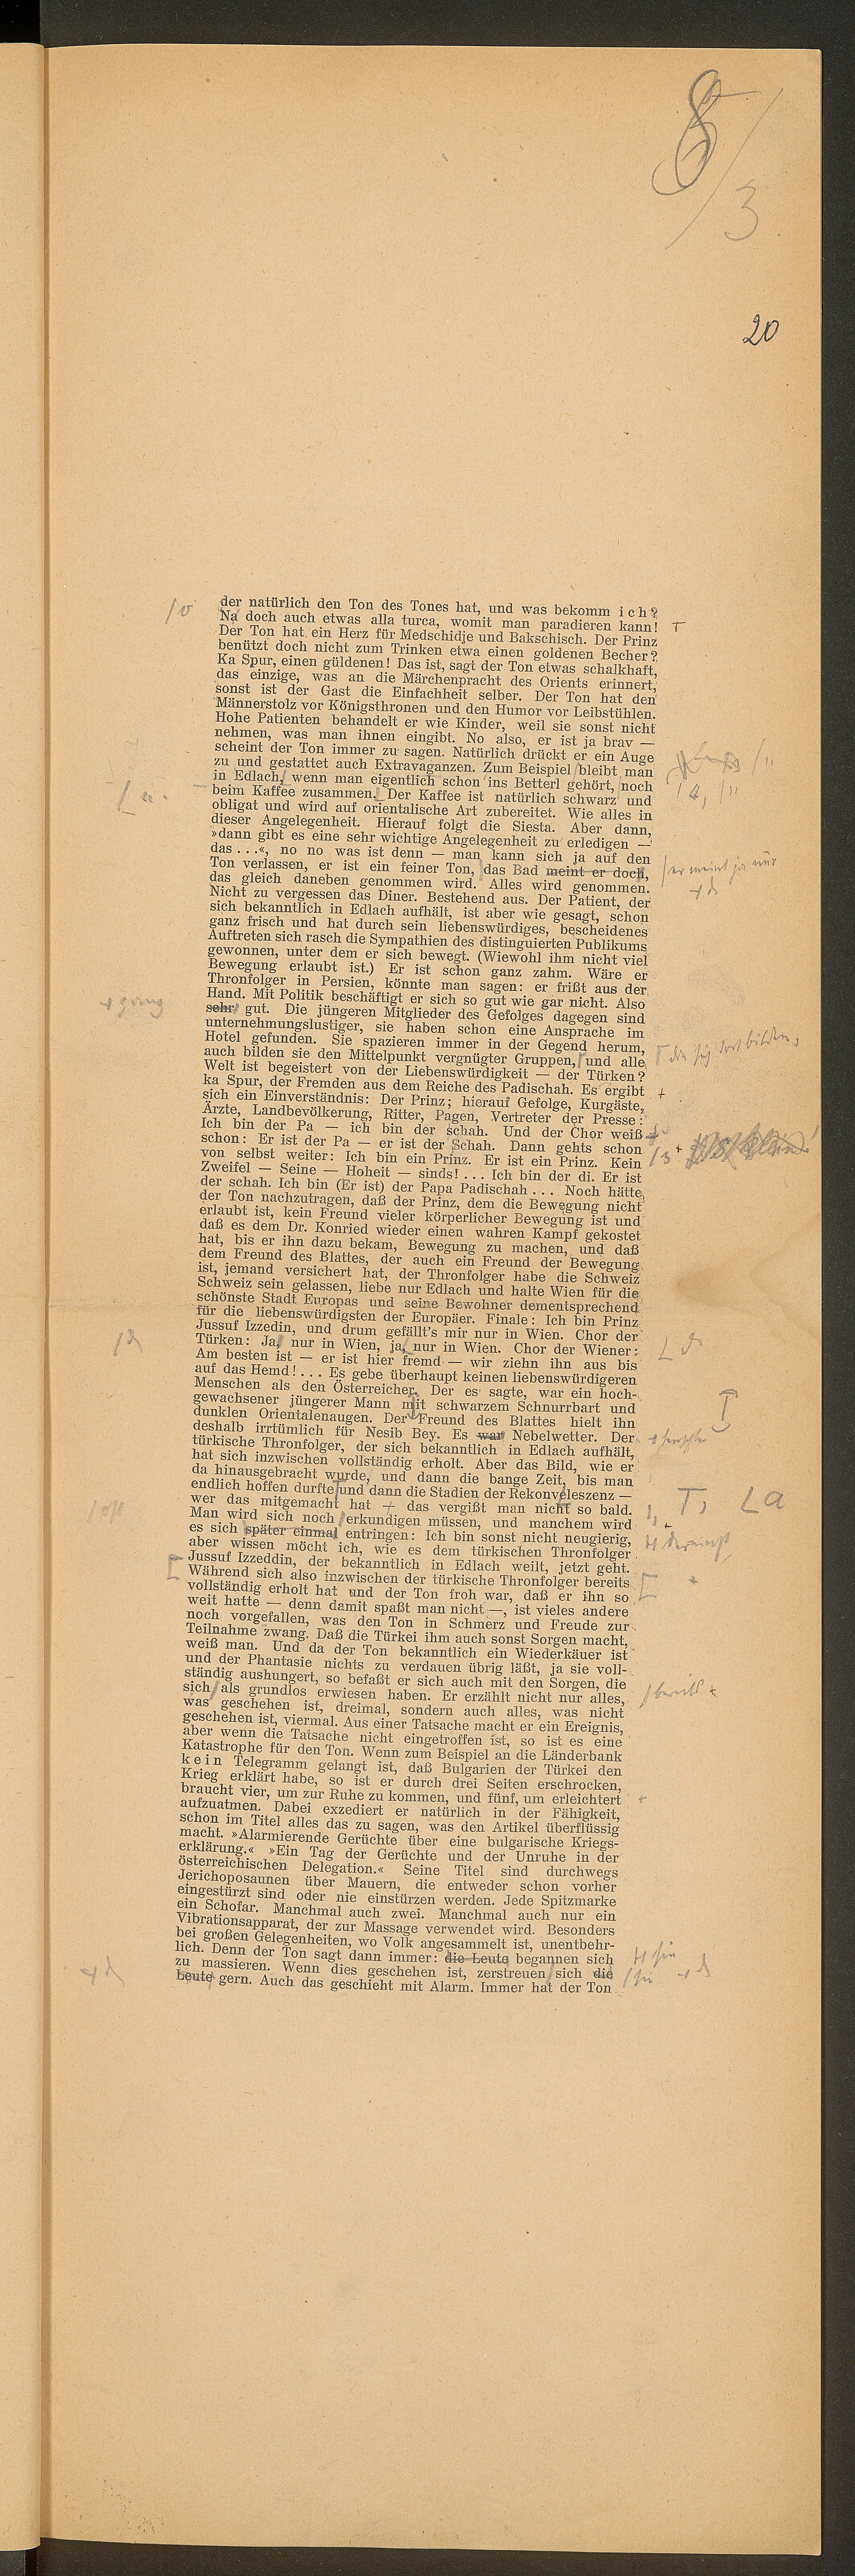 8/3
20
der natürlich den Ton des Tones hat, und was bekomm ich?
Na doch auch etwas alla turca, womit man paradieren kann!
Der Ton hat ein Herz für Medschidje und Bakschisch. Der Prinz
benützt doch nicht zum Trinken etwa einen goldenen Becher?
Ka Spur, einen güldenen! Das ist, sagt der Ton etwas schalkhaft,
das einzige, was an die Märchenpracht des Orients erinnert,
sonst ist der Gast die Einfachheit selber. Der Ton hat den
Männerstolz vor Königsthronen und den Humor vor Leibstühlen.
Hohe Patienten behandelt er wie Kinder, weil sie sonst nicht
nehmen, was man ihnen eingibt. No also, er ist ja brav —
scheint der Ton immer zu sagen. Natürlich drückt er ein Auge
zu und gestattet auch Extravaganzen. Zum Beispiel bleibt man
in Edlach, wenn man eigentlich schon ins Betterl gehört, noch
beim Kaffee zusammen. Der Kaffee ist natürlich schwarz und
obligat und wird auf orientalische Art zubereitet. Wie alles in
dieser Angelegenheit. Hierauf folgt die Siesta. Aber dann,
»dann gibt es eine sehr wichtige Angelegenheit zu erledigen —
das . . .«, no no was ist denn — man kann sich ja auf den
Ton verlassen, er ist ein feiner Ton, das Bad meint er doch,
/er meint ja nur
das gleich daneben genommen wird. Alles wird genommen.
Nicht zu vergessen das Diner. Bestehend aus. Der Patient, der
sich bekanntlich in Edlach aufhält, ist aber wie gesagt, schon
ganz frisch und hat durch sein liebenswürdiges, bescheidenes
Auftreten sich rasch die Sympathien des distinguierten Publikums
gewonnen, unter dem er sich bewegt. (Wiewohl ihm nicht viel
Bewegung erlaubt ist.) Er ist schon ganz zahm. Wäre er
Thronfolger in Persien, könnte man sagen: er frißt aus der
Hand. Mit Politik beschäftigt er sich so gut wie gar nicht. Also
sehr gut. Die jüngeren Mitglieder des Gefolges dagegen sind
unternehmungslustiger, sie haben schon eine Ansprache im
Hotel gefunden. Sie spazieren immer in der Gegend herum,
auch bilden sie den Mittelpunkt vergnügter Gruppen, und alle
die sich dort bilden,
Welt ist begeistert von der Liebenswürdigkeit — der Türken?
ka Spur, der Fremden aus dem Reiche des Padischah. Es ergibt
sich ein Einverständnis: Der Prinz; hierauf Gefolge, Kurgäste,
Ärzte, Landbevölkerung, Ritter, Pagen, Vertreter der Presse:
Ich bin der Pa — ich bin der schah. Und der Chor weiß
schon: Er ist der Pa — er ist der Schah. Dann gehts schon
von selbst weiter: Ich bin ein Prinz. Er ist ein Prinz. Kein
Zweifel — Seine — Hoheit — sinds! . . . Ich bin der di. Er ist
der schah. Ich bin (Er ist) der Papa Padischah . . . Noch hätte
der Ton nachzutragen, daß der Prinz, dem die Bewegung nicht
erlaubt ist, kein Freund vieler körperlicher Bewegung ist und
daß es dem Dr. Konried wieder einen wahren Kampf gekostet
hat, bis er ihn dazu bekam, Bewegung zu machen, und daß
dem Freund des Blattes, der auch ein Freund der Bewegung
ist, jemand versichert hat, der Thronfolger habe die Schweiz
Schweiz sein gelassen, liebe nur Edlach und halte Wien für die
schönste Stadt Europas und seine Bewohner dementsprechend
für die liebenswürdigsten der Europäer. Finale: Ich bin Prinz
Jussuf Izzedin, und drum gefällt's mir nur in Wien. Chor der
Türken: Ja, nur in Wien, ja, nur in Wien. Chor der Wiener:
Am besten ist — er ist hier fremd — wir ziehn ihn aus bis
auf das Hemd! . . . Es gebe überhaupt keinen liebenswürdigeren
Menschen als den Österreicher. Der es sagte, war ein hoch-
gewachsener jüngerer Mann mit schwarzem Schnurrbart und
dunklen Orientalenaugen. Der Freund des Blattes hielt ihn
deshalb irrtümlich für Nesib Bey. Es war Nebelwetter. Der
herrschte
türkische Thronfolger, der sich bekanntlich in Edlach aufhält,
hat sich inzwischen vollständig erholt. Aber das Bild, wie er
da hinausgebracht wurde, und dann die bange Zeit, bis man
endlich hoffen durfte und dann die Stadien der Rekonveleszenz —
La
wer das mitgemacht hat — das vergißt man nicht so bald.
Man wird sich noch erkundigen müssen, und manchem wird
/oft
es sich später einmal entringen: Ich bin sonst nicht neugierig,
dereinst
aber wissen möcht ich, wie es dem türkischen Thronfolger
Jussuf Izzeddin, der bekanntlich in Edlach weilt, jetzt geht.
Während sich also inzwischen der türkische Thronfolger bereits
vollständig erholt hat und der Ton froh war, daß er ihn so
weit hatte — denn damit spaßt man nicht —, ist vieles andere
noch vorgefallen, was den Ton in Schmerz und Freude zur
Teilnahme zwang. Daß die Türkei ihm auch sonst Sorgen macht,
weiß man. Und da der Ton bekanntlich ein Wiederkäuer ist
und der Phantasie nichts zu verdauen übrig läßt, ja sie voll-
ständig aushungert, so befaßt er sich auch mit den Sorgen, die
sich als grundlos erwiesen haben. Er erzählt nicht nur alles,
/bereits
was geschehen ist, dreimal, sondern auch alles, was nicht
geschehen ist, viermal. Aus einer Tatsache macht er ein Ereignis,
aber wenn die Tatsache nicht eingetroffen ist, so ist es eine
Katastrophe für den Ton. Wenn zum Beispiel an die Länderbank
kein Telegramm gelangt ist, daß Bulgarien der Türkei den
Krieg erklärt habe, so ist er durch drei Seiten erschrocken,
braucht vier, um zur Ruhe zu kommen, und fünf, um erleichtert
aufzuatmen. Dabei exzediert er natürlich in der Fähigkeit,
schon im Titel alles das zu sagen, was den Artikel überflüssig
macht. »Alarmierende Gerüchte über eine bulgarische Kriegs-
erklärung.« »Ein Tag der Gerüchte und der Unruhe in der
österreichischen Delegation.« Seine Titel sind durchwegs
Jerichoposaunen über Mauern, die entweder schon vorher
eingestürzt sind oder nie einstürzen werden. Jede Spitzmarke
ein Schofar. Manchmal auch zwei. Manchmal auch nur ein
Vibrationsapparat, der zur Massage verwendet wird. Besonders
bei großen Gelegenheiten, wo Volk angesammelt ist, unentbehr-
lich. Denn der Ton sagt dann immer: die Leute begannen sich
sie
zu massieren. Wenn dies geschehen ist, zerstreuen sich die
/sie
Leute gern. Auch das geschieht mit Alarm. Immer hat der Ton